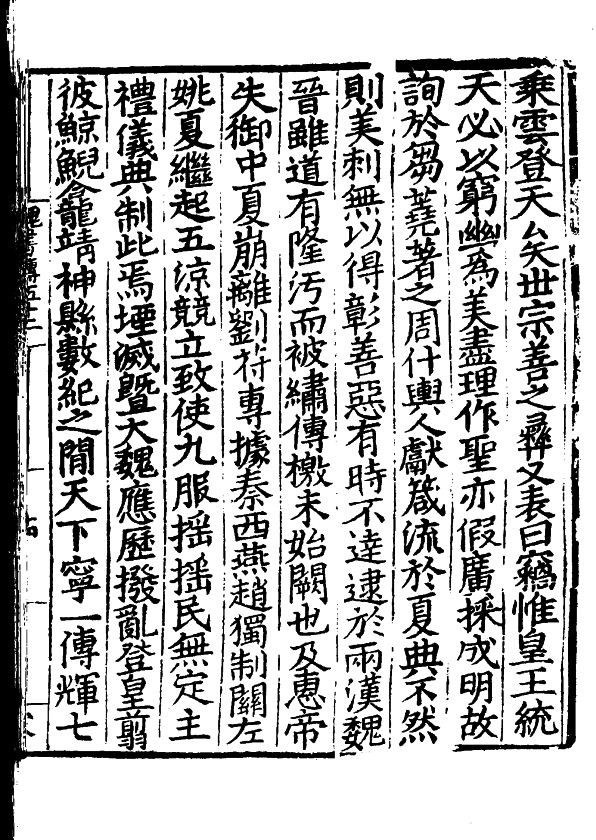 乘雲登天乆矣世宗善之彝又表曰竊惟皇王統
天必以窮幽爲美盡理作聖亦假廣採成明故
詢於芻蕘著之周什輿人獻箴流於夏典不然
則美刺無以得彰善惡有時不達逮於兩漢魏
晉雖道有隆汚而被繡傳檄未始闕也及惠帝
失御中夏崩離劉苻專據秦西燕趙獨制關左
姚夏繼起五涼競立致使九服揺揺民無定主
禮儀典制此焉堙滅暨大魏應歷撥亂登皇翦
彼鯨鯢龕靖神縣數紀之閒天下寧一傳輝七
魏書傳五十二